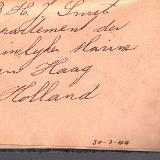 B H. J. Smet
partement der
inlyke Marine
en Haag
Holland
30-3-44